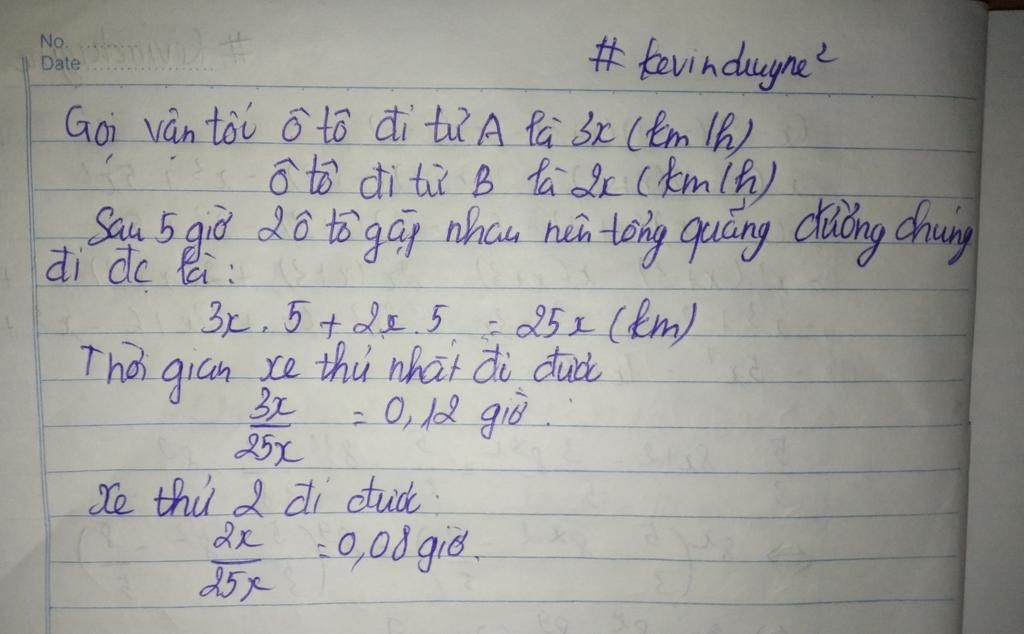 No.
Date
# kevinduyne²
Gọi vận tốc ô tô đi từ A là 3x (km/h)
ô tô đi từ B là 2x (km/h)
Sau 5 giờ 2 ô tô gặp nhau nên tổng quãng đường chúng
đi đc là:
3x . 5 + 2x . 5 = 25x (km)
Thời gian xe thứ nhất đi được
3x/25x = 0,12 giờ.
Xe thứ 2 đi được:
2x/25x = 0,08 giờ.